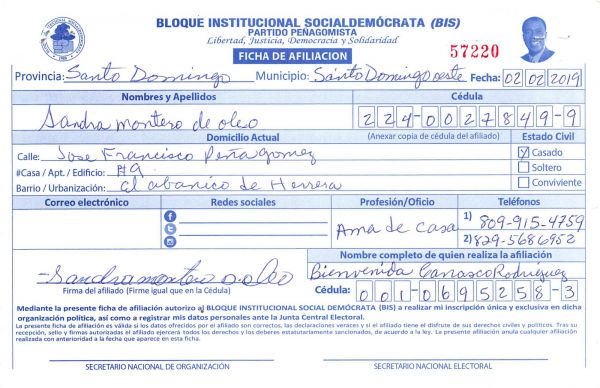 BLOQUE INSTITUCIONAL SOCIALDEMÓCRATA (BIS)
PARTIDO PEÑAGOMISTA
Libertad, Justicia, Democracia y Solidaridad
FICHA DE AFILIACION
57220
Provincia: Santo Domingo Municipio: Santo Domingo oeste Fecha: 02 02 2019
Nombres y Apellidos Cédula
Sandra montero de oleo 224-0027849-9
Domicilio Actual (Anexar copia de cédula del afiliado) Estado Civil
Calle: Jose Francisco Peña gomez Casado
#Casa / Apt. / Edificio: #9 Soltero
Barrio / Urbanización: el abanico de Herrera Conviviente
Correo electrónico Redes sociales Profesión/Oficio Teléfonos
Ama de casa 1) 809-915-4759
2) 829-5686952
Nombre completo de quien realiza la afiliación
Sandra montero d. oleo Bienvenida Carrasco Rodriguez
Firma del afiliado (Firme igual que en la Cédula) Cédula: 001-0695258-3
Mediante la presente ficha de afiliación autorizo al BLOQUE INSTITUCIONAL SOCIAL DEMÓCRATA (BIS) a realizar mi inscripción única y exclusiva en dicha
organización política, así como a registrar mis datos personales ante la Junta Central Electoral.
La presente ficha de afiliación es válida si los datos ofrecidos por el afiliado son correctos, las declaraciones veraces y si el afiliado tiene el disfrute de sus derechos civiles y políticos. Tras su
recepción, sello y firmas autorizadas el afiliado ejercerá todos los derechos y los deberes estatutariamente sancionados, de acuerdo a la ley. La presente afiliación anula cualquier afiliación
realizada con anterioridad a la fecha que aparece en esta ficha.
SECRETARIO NACIONAL DE ORGANIZACIÓN SECRETARIO NACIONAL ELECTORAL